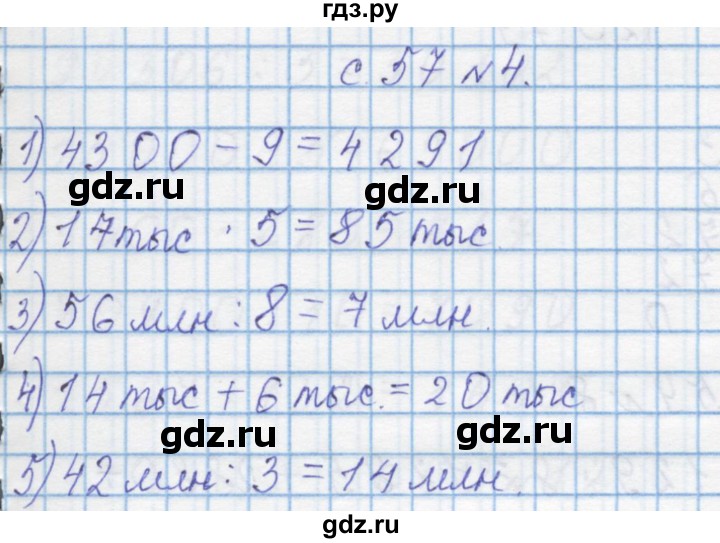 гдз.ру
с. 57 № 4.
1) 4300 - 9 = 4291
gdz.ru gdz.ru
2) 17 тыс · 5 = 85 тыс.
3) 56 млн : 8 = 7 млн.
4) 14 тыс + 6 тыс. = 20 тыс
gdz.ru gdz.ru
5) 42 млн : 3 = 14 млн.
gdz.ru